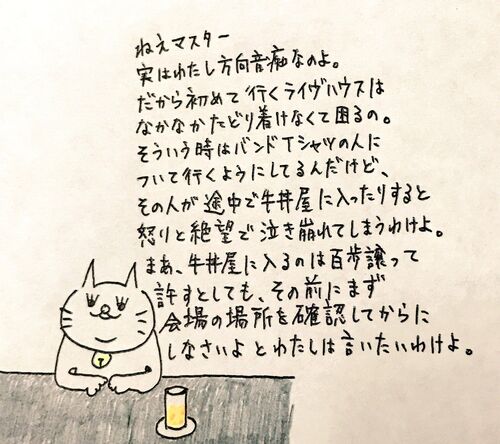 ねえマスター
実はわたし方向音痴なのよ。
だから初めて行くライヴハウスは
なかなかたどり着けなくて困るの。
そういう時はバンドTシャツの人に
ついて行くようにしてるんだけど、
その人が途中で牛丼屋に入ったりすると
怒りと絶望で泣き崩れてしまうわけよ。
まあ、牛丼屋に入るのは百歩譲って
許すとしても、その前にまず
会場の場所を確認してからに
しなさいよとわたしは言いたいわけよ。